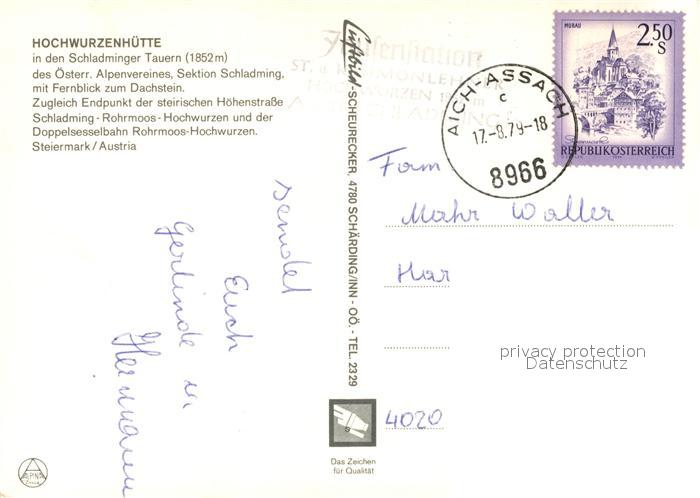 HOCHWURZENHÜTTE
in den Schladminger Tauern (1852 m)
des Österr. Alpenvereines, Sektion Schladming,
mit Fernblick zum Dachstein.
Zugleich Endpunkt der steirischen Höhenstraße
Schladming - Rohrmoos - Hochwurzen und der
Doppelsesselbahn Rohrmoos-Hochwurzen.
Steiermark / Austria
sendet
Euch
Gerlinde u
Hermann
ALPINA
Luftbild-SCHEURECKER, 4780 SCHÄRDING/INN - OÖ. - TEL. 23 29
Das Zeichen
für Qualität
HOCHWURZEN
AICH-ASSACH
c
17.-8.79-18
8966
MURAU
2.50
S
REPUBLIK ÖSTERREICH
Fam
Mahr Walter
Har
privacy protection
Datenschutz
4020